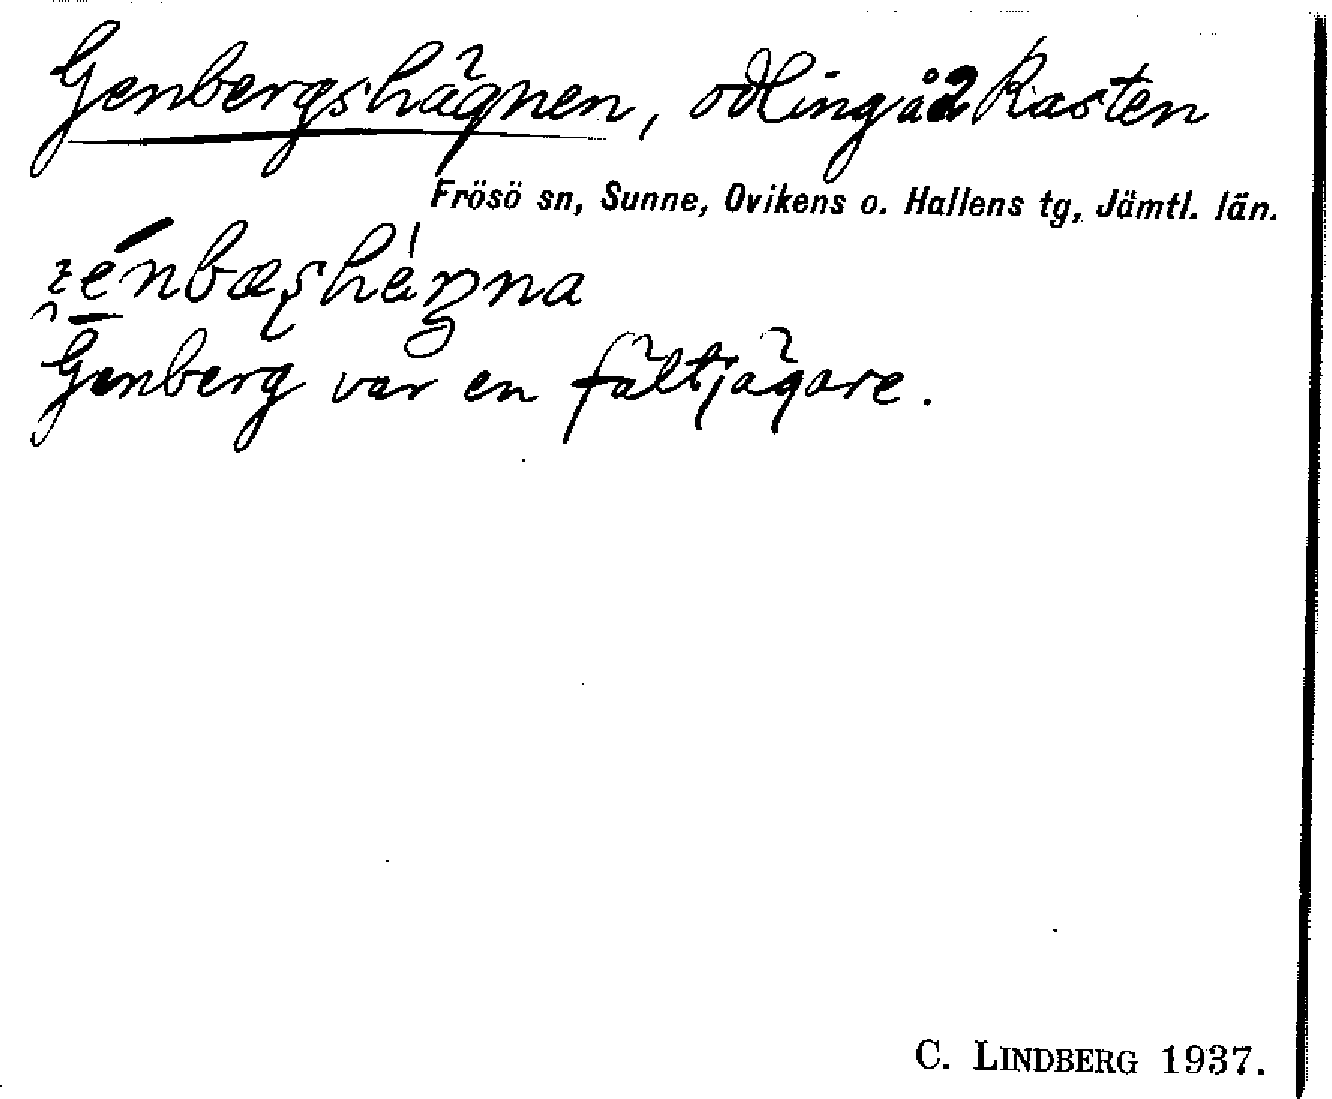 Genbergshägnen, odling å Rasten
Frösö sn, Sunne, Ovikens o. Hallens tg, Jämtl. län.
Genberg var en fältjägare.
C. LINDBERG 1937.